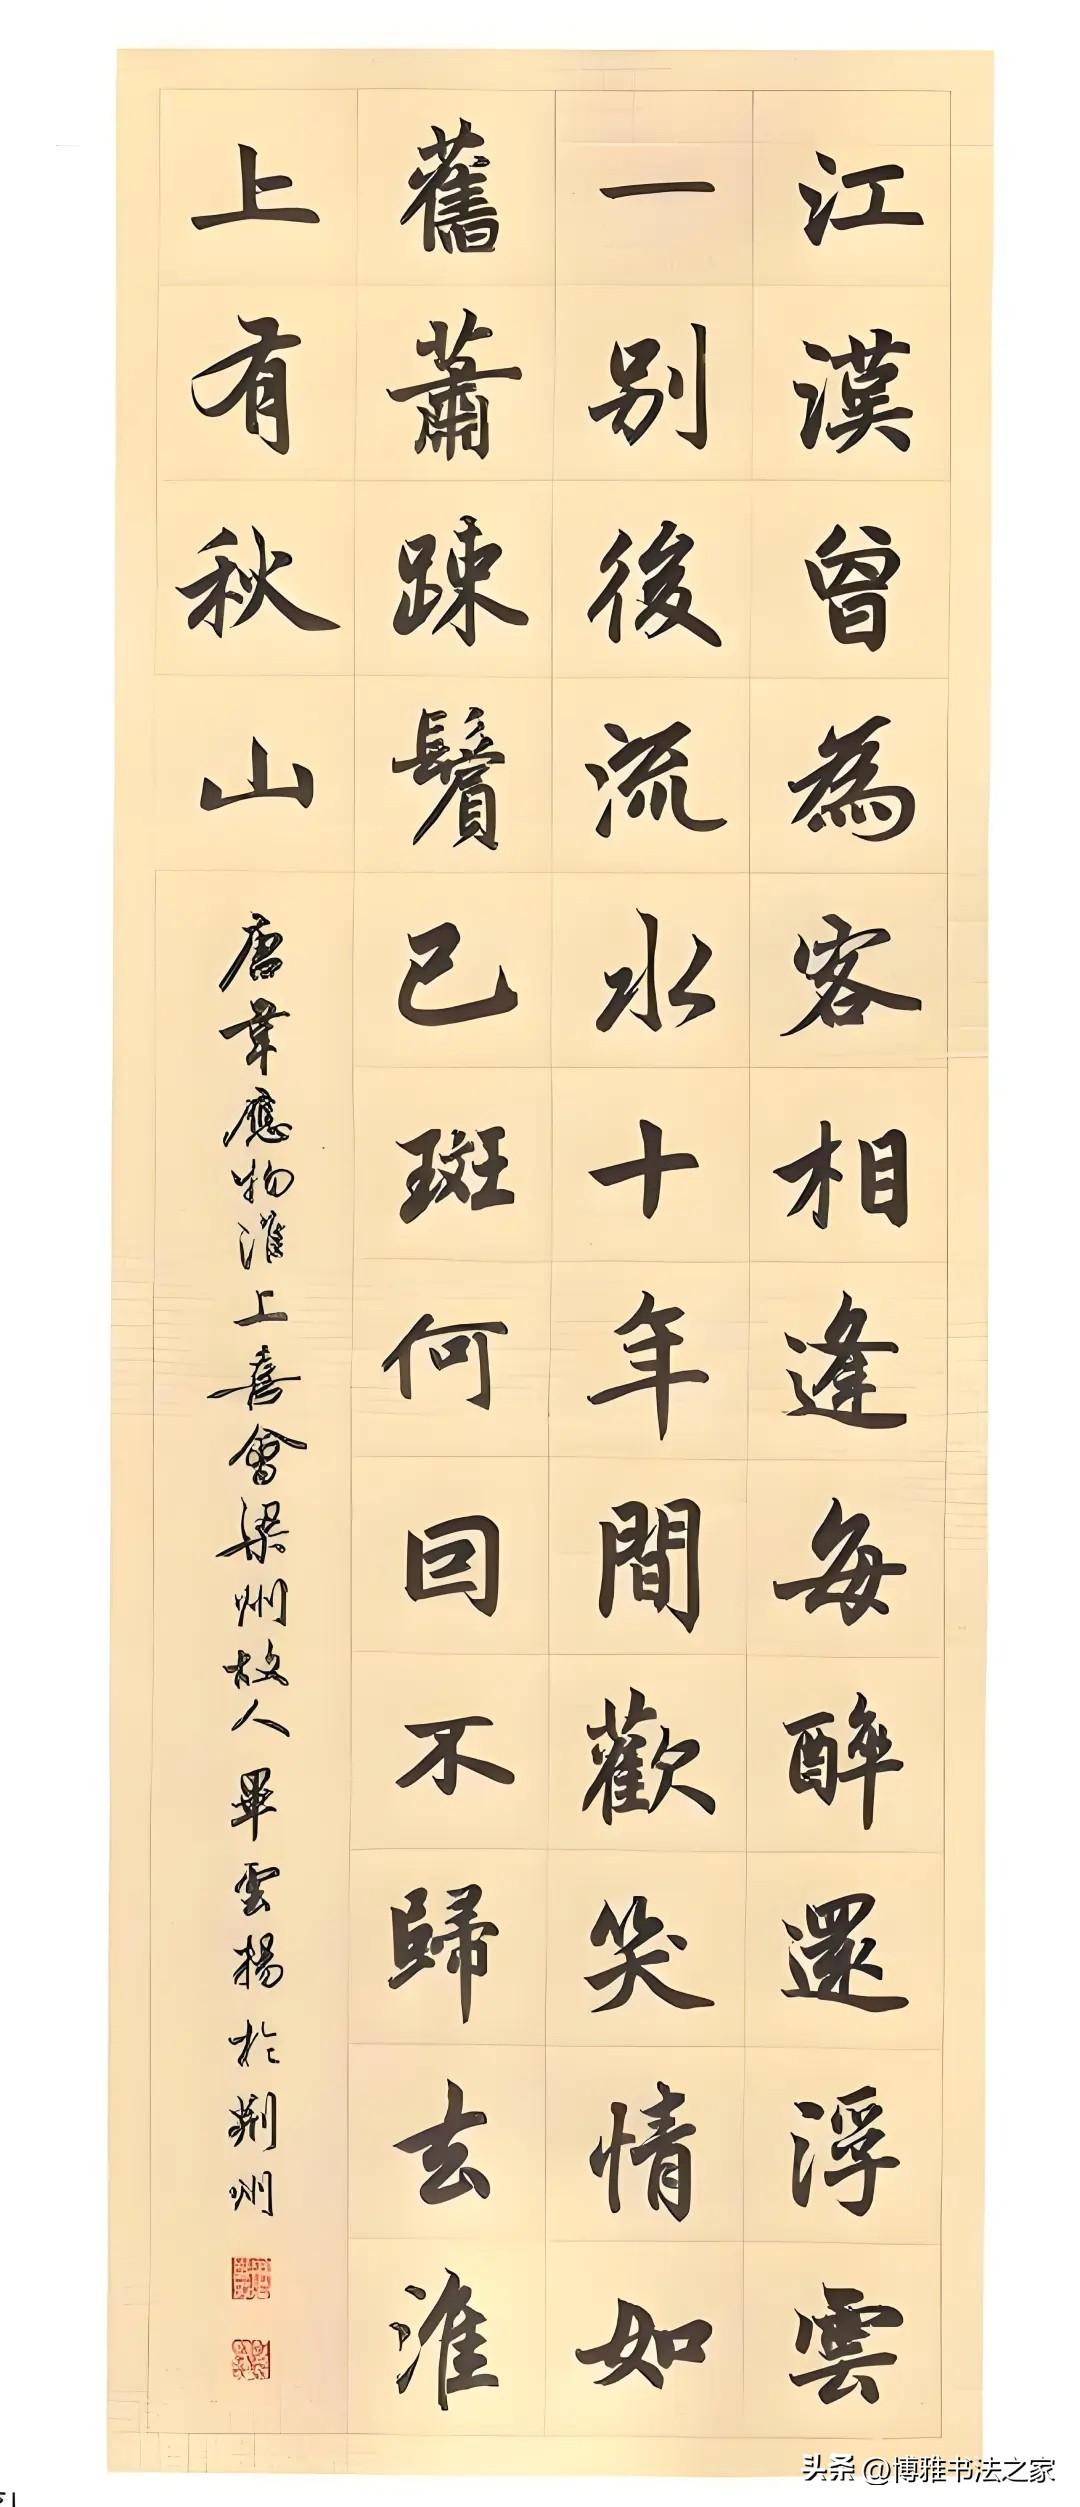 江漢曾為客相逢每醉還浮雲
一別後流水十年間歡笑情如
舊蕭踈鬢已斑何回不歸去淮
上有秋山
唐韋應物淮上喜會梁州故人 畢雲揚於荊州
头条 @博雅书法之家